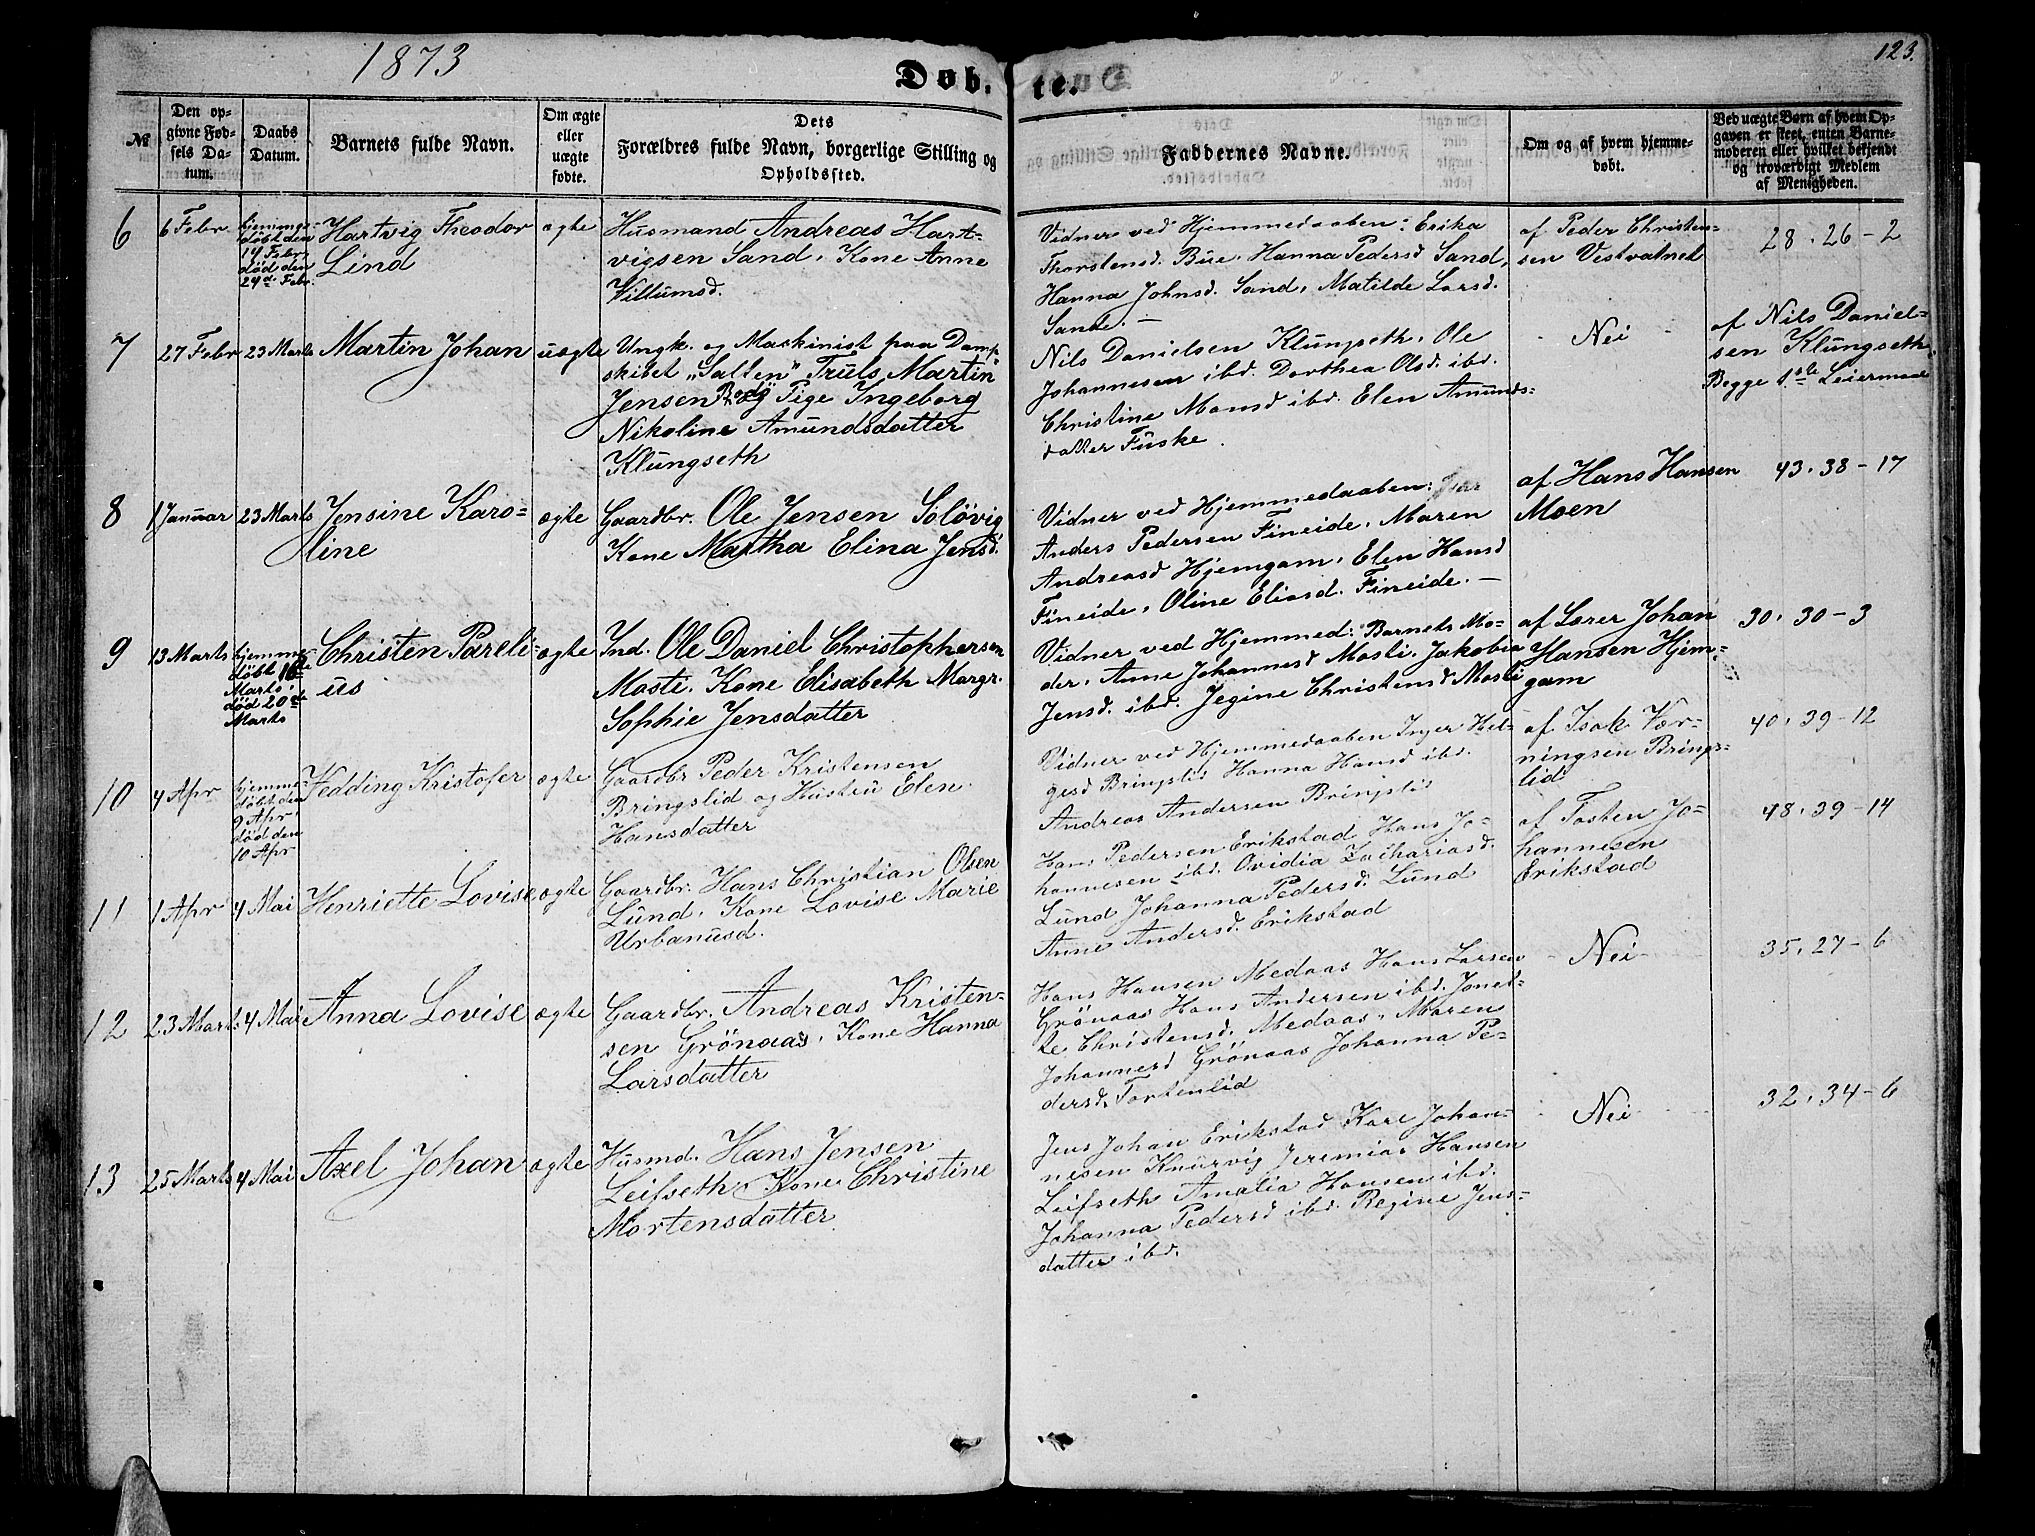 1873
Døb-
te.
123.
№
Den op-
givne Fød-
sels Da-
tum.
Daabs
Datum.
Barnets fulde Navn.
Om ægte
eller
uægte
fødte.
Dets
Forældres fulde Navn, borgerlige Stilling og
Opholdssted.
Faddernes Navne.
Om og af hvem hjemme-
døbt.
Ved uægte Børn af hvem Op-
gaven er skeet, enten Barne-
moderen eller hvilket bekjendt
og troværdigt Medlem
af Menigheden.
6
6 Febr
hjemme-
døbt den
14 Febr
død den
24de Febr.
Hartvig Theodor
Lind
ægte
Husmand Andreas Hart-
vigsen Sand, Kone Anne
Villumsd.
Vidner ved Hjemmedaaben: Erika
Thorstensd. Bue. Hanna Pedersd Sand,
Hanna Johnsd. Sand, Matilde Larsd.
Sande. —
af Peder Christen-
sen Vestvatnet
28. 26 - 2
7
27 Febr
23 Marts
Martin Johan
uægte
Ungk. og Maskinist paa Damp-
skibet "Salten" Truls Martin
Jensen Bodø og Pige Ingeborg
Nikoline Amundsdatter
Klungseth
Nils Danielsen Klungseth, Ole
Johannesen ibd. Dorthea Olsd. ibd.
Christine Monsd ibd. Elen Amunds-
datter Fuske.
Nei
af Nils Daniel-
sen Klungseth.
Begge 1ste Leiermaal
8
1 Januar
23 Marts
Jensine Karo-
line
ægte
Gaardbr. Ole Jensen Soløvig
Kone Martha Elina Jensd.
Vidner ved Hjemmedaaben:
Anders Pedersen Fineide. Maren
Andreasd Hjemgam, Elen Hansd
Fineide, Oline Eliasd. Fineide. —
af Hans Hansen
Moen
43. 38 - 17
9
13 Marts
hjemme-
døbt 16de
Marts
død 20de
Marts
Christen Pareli-
us
ægte
Ind. Ole Daniel Christophersen
Mosti. Kone Elisabeth Margr.
Sophie Jensdatter
Vidner ved Hjemmed: Barnets Mo-
der, Anne Johannesd Mosti. Jakobia
Jensd. ibd. Jegine Christensd Mosti
af Lærer Johan
Hansen Hjem-
gam
30. 30 - 3
10
4 Apr
hjemme-
døbt den
9 Apr
død den
10 Apr
Vedding Kristofer
ægte
Gaardbr Peder Kristensen
Bringslid og Hustru Elen
Hansdatter
Vidner ved Hjemmedaaben Inger Hel-
gesd Bringslid Hanna Hansd ibd.
Andreas Andersen Bringslid
af Isak Vær-
ningsen Brings-
lid
40. 39 - 12
11
1 Apr
4 Mai
Henriette Lovise
ægte
Gaardbr. Hans Christian Olsen
Lund. Kone Lovise Marie
Urbanusd.
Hans Pedersen Erikstad Hans Jo-
hannesen ibd. Ovidia Zachariasd.
Lund Johanna Pedersd. Lund
Anne Andersd. Erikstad
af Tosten Jo-
hannesen
Erikstad
48. 39 - 14
12
23 Marts
4 Mai
Anna Lovise
ægte
Gaardbr. Andreas Kristen-
sen Grönaas, Kone Hanna
Larsdatter
Hans Hansen Medaas Hans Larsen
Grönaas Hans Andersen ibd. Jonet-
te Christensd. Medaas. Maren
Johannesd Grönaas Johanna Pe-
dersd. Tortenlid
Nei
35. 27 - 6
13
25 Marts
4 Mai
Axel Johan
ægte
Husmd. Hans Jensen
Leifseth Kone Christine
Mortensdatter
Jens Johan Erikstad Karl Johan-
nesen Knurvig Jeremias Hansen
Leifseth Amalia Hansen ibd.
Johanna Pedersd ibd. Regine Jens-
datter ibd.
Nei
32. 34 - 6